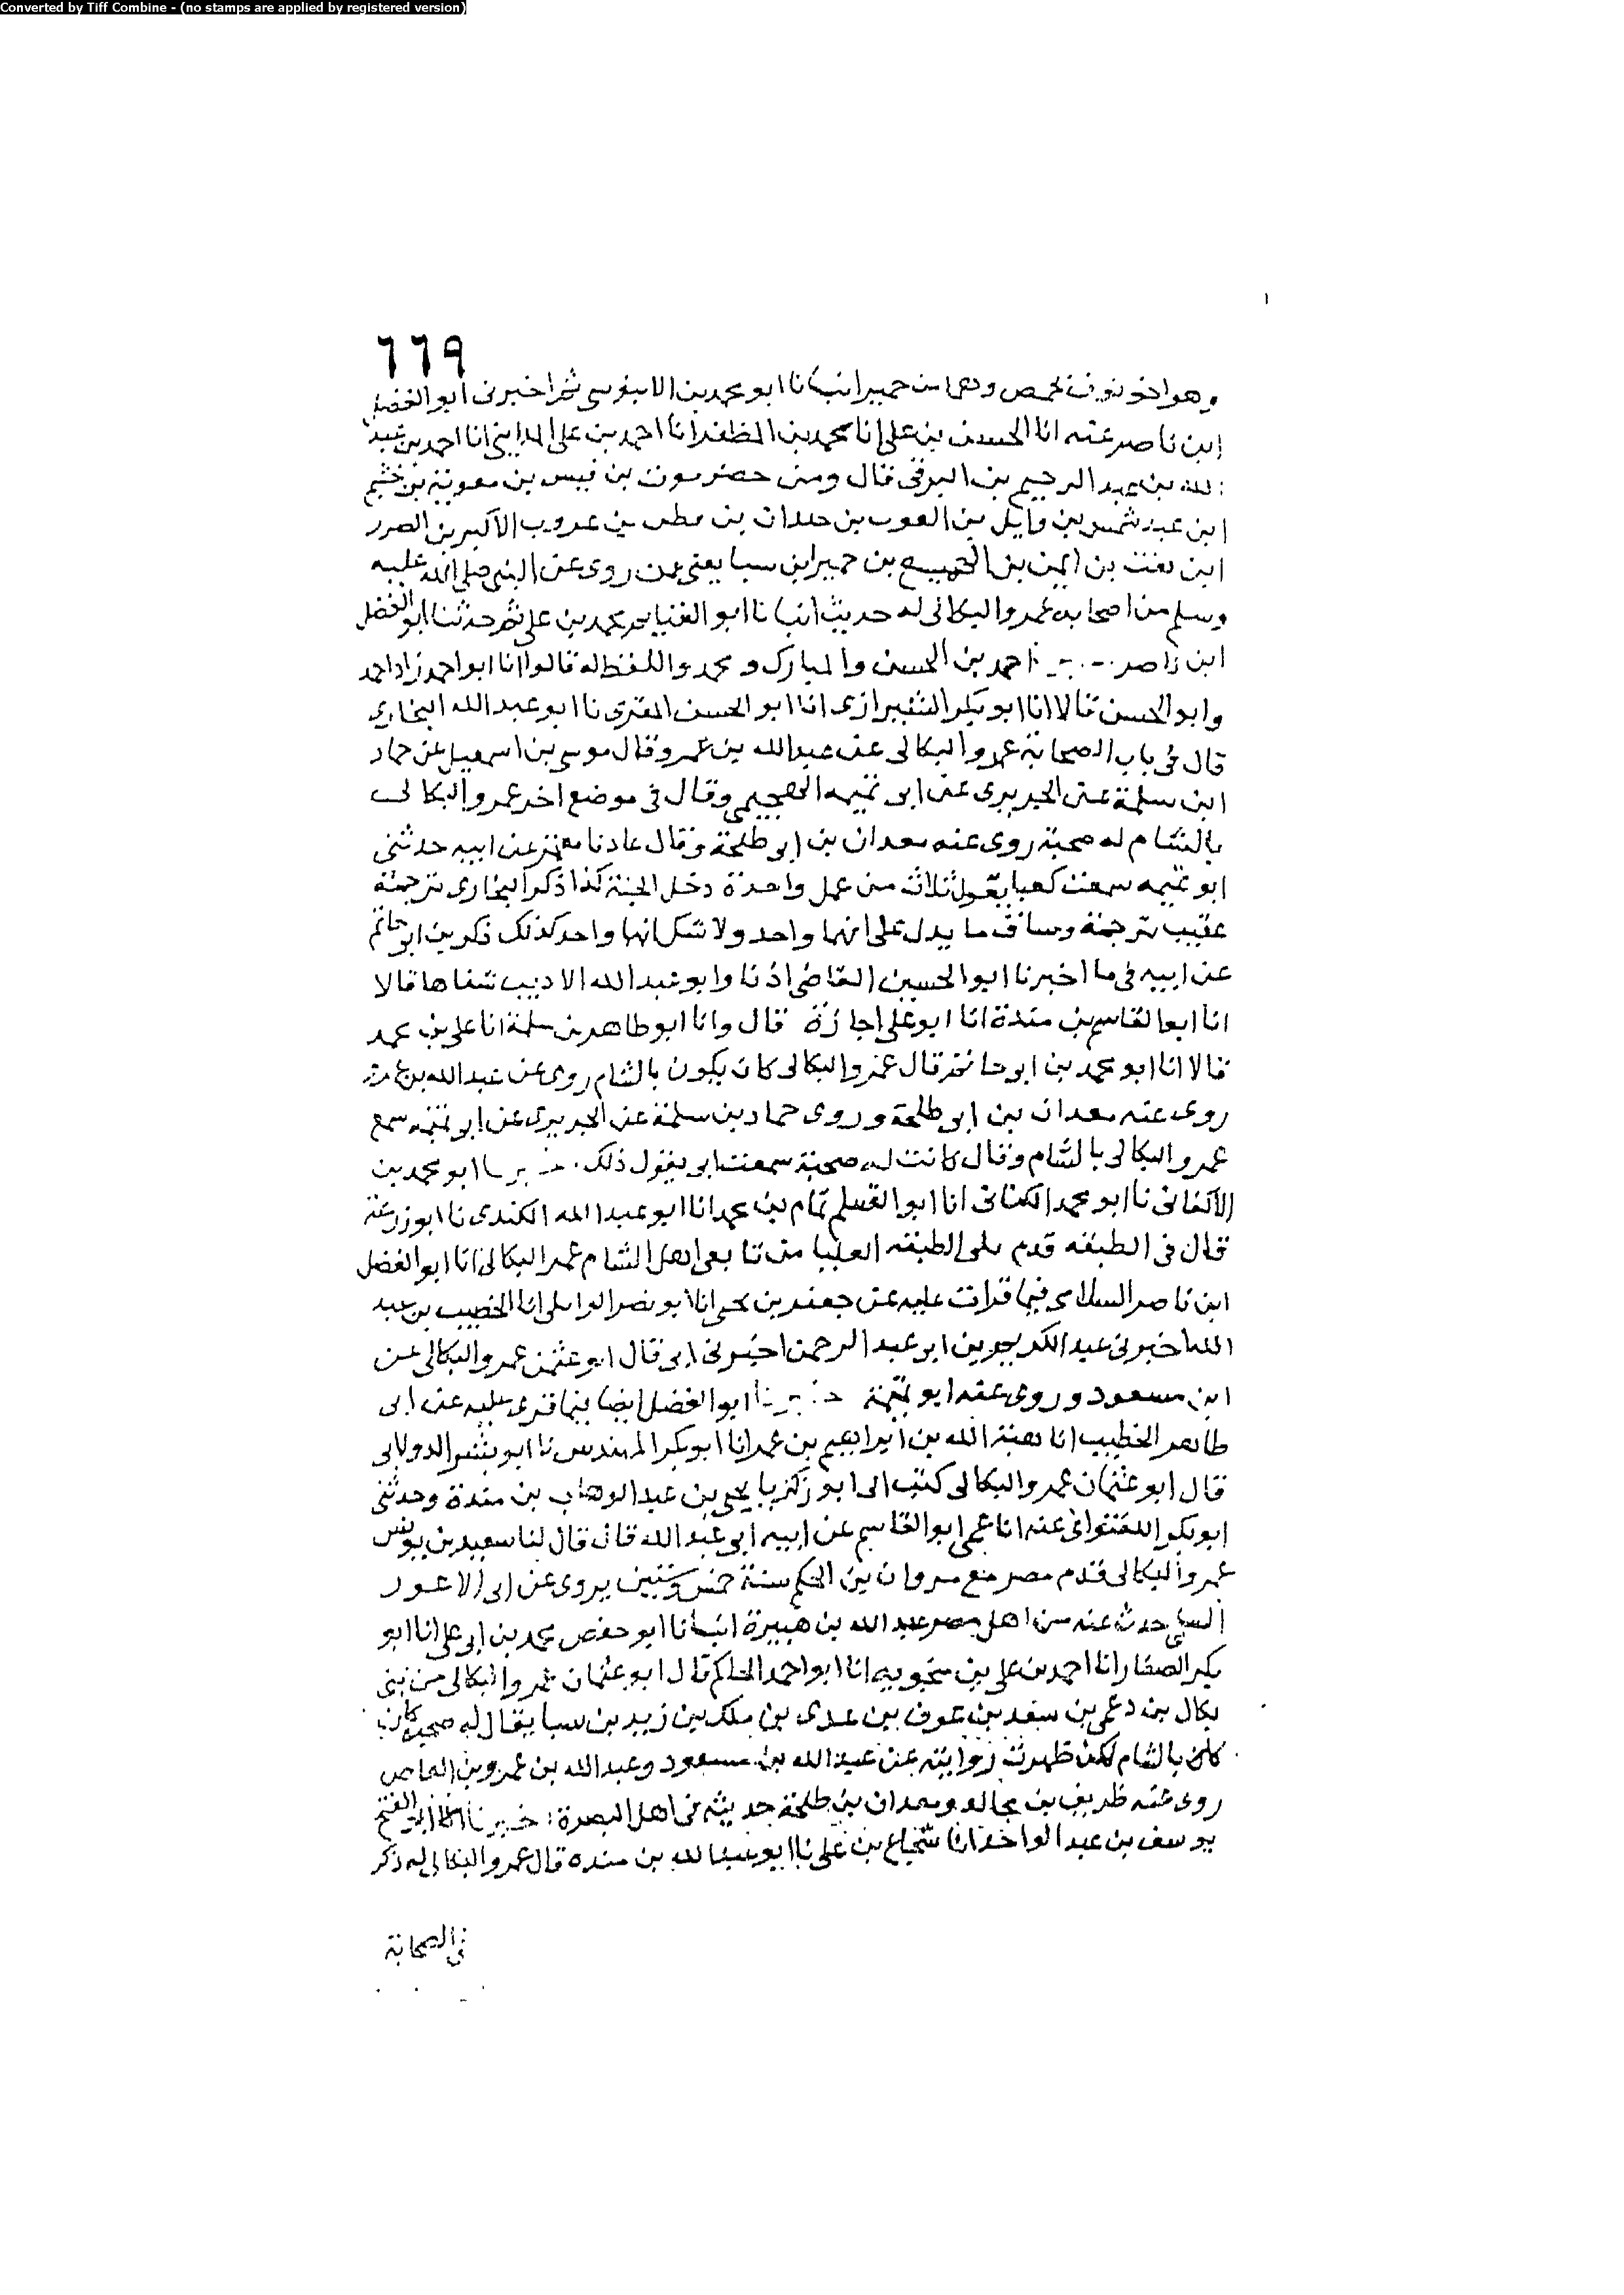 Converted by Tiff Combine - (no stamps are applied by registered version)
٦٦٩
وهو اخو نوف بحمص وهما من حمير انبانا ابو محمد بن الابنوسى ثم اخبرنى ابو الفضل
ابن ناصر عنه انا الحسن بن على انا محمد بن المظفر انا احمد بن على المداينى انا احمد بن عبد
الله بن عبد الرحيم بن البرقى قال ومن حضرموت بن قيس بن معوية بن خثيم
ابن عبد شمس بن وايل بن الغوث بن حيدان بن قطن بن عريب الاكبر بن
ابن ايمن بن الهميسع بن حمير ابن سبا يعنى ممن روى عن النبى صلى الله عليه
وسلم من اصحابه عمرو البكالى له حديث انبانا ابو الغنايم محمد بن على ثم حدثنا ابو الفضل
ابن ناصر انا احمد بن الحسن والمبارك ومحمد واللفظ له قالوا انا ابو احمد زاد احمد
وابو الحسن قالا انا ابو بكر الشيرازى انا ابو الحسن المقرى نا ابو عبد الله البخاري
قال فى باب الصحابة عمرو البكالى عن عبد الله بن عمرو قال موسى بن اسمعيل عن حماد
ابن سلمة عن الجريرى عن ابى تميمه الهجيمى وقال فى موضع اخر عمرو البكالى
بالشام له صحبة روى عنه معدان بن ابى طلحة وقال عاد نا معتمر عن ابيه حدثنى
ابو تميمه سمعت كعبا يقول ثلاث من عمل واحدة دخل الجنة كذا ذكر البخارى ترجمة
عقيب ترجمة وساق ما يدل على انهما واحد ولا شك انهما واحد كذلك ذكر بن ابى حاتم
عن ابيه فى ما اخبرنا ابو الحسين القاضى اذنا وابو عبد الله الاديب شفاها قالا
انا ابو القاسم بن مندة انا ابو على اجازة قال وانا ابو طاهر بن سلمة انا على بن محمد
قالا انا ابو محمد بن ابى حاتم قال عمرو البكالى كان يكون بالشام روى عن عبد الله بن عمرو
روى عنه معدان بن ابى طلحة وروى حماد بن سلمة عن الجريرى عن ابو تميمه سمع
عمرو البكالى بالشام وقال كانت له صحبة سمعت ابى يقول ذلك اخبرنا ابو محمد بن
الاكفانى نا ابو محمد الكتانى انا ابو القسم تمام بن محمد انا ابو عبد الله الكندى نا ابو زرعة
قال فى الطبقه قدم تلى الطبقه العليا من تابعى اهل الشام عمر البكالى انا ابو الفضل
ابن ناصر السلامى فيما قرات عليه عن جعفر بن يحى انا ابو نصر الوايلى انا الخصيب بن عبد
الله اخبرنى عبد الكريم بن ابو عبد الرحمن اخبرنى ابى قال ابو عثمن عمرو البكالى عن
ابن مسعود وروى عنه ابو تميمة اخبرنا ابو الفضل ايضا فيما قرى عليه عن ابى
طاهر الخطيب انا هبة الله بن ابراهيم بن عمر انا ابو بكر المهندس نا ابو بشر الدولابى
قال ابو عثمان عمرو البكالى كتب الى ابو زكريا يحيى بن عبد الوهاب بن مندة وحدثنى
ابو بكر اللفتوانى عنه انا عمى ابو القاسم عن ابيه ابى عبد الله قال قال لنا سعيد بن يونس
عمرو البكالى قدم مصر مع مروان بن الحكم سنة خمس وستين يروى عن ابى الاعور
السلمى حدث عنه من اهل مصر عبد الله بن هبيرة انبانا ابو جعفر محمد بن ابى على انا ابو
بكر الصفار انا احمد بن على بن منجويه انا ابو احمد الحاكم قال ابو عثمان عمرو البكالى من بنى
بكال بن دعمى بن سعد بن عوف بن عدى بن ملك بن زيد بن سبا يقال له صحبة كان
كان بالشام لكن ظهرت روايته عن عبد الله بن مسعود وعبد الله بن عمرو بن العاص
روى عنه طريف بن مجالد ومعدان بن طلحة حديثه فى اهل البصرة اخبرنا ابو الفتح
يوسف بن عبد الواحد انا شجاع بن على نا ابو عبد الله بن منده قال عمرو البكالى له ذكر
فى الصحابة